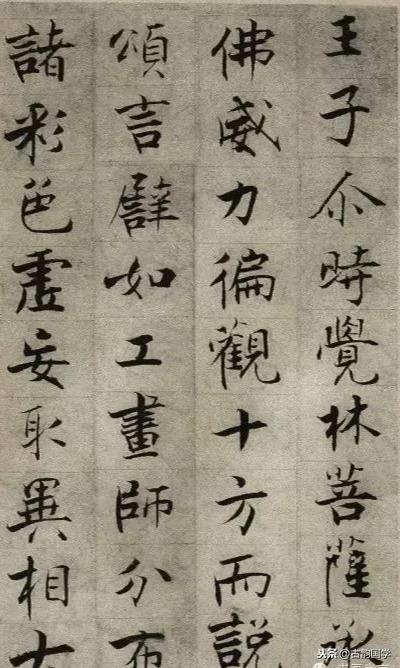 王子尒時覺林菩薩承
佛威力徧觀十方而説
頌言譬如工畫師分布
諸彩色虛妄取異相大
头条@古韵国学